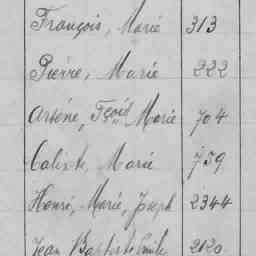 François, Marie 313
Pierre, Marie 222
Arsène, Fçois, Marie 704
Calixte, Marie 759
Henri, Marie, Joseph 2344
Jean Baptiste Emile 2120